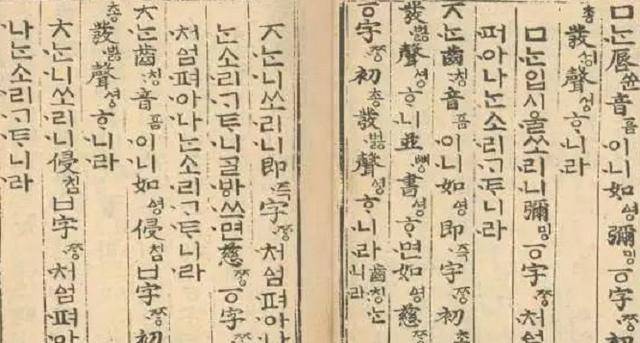 ㅁᄂᆞᆫ脣쓘音ᅙᅳᆷ이니如ᅀᅧᆼ彌밍ㆆ字ᄍᆞᆼ初
총發벓聲셩ᄒᆞ니라
ㅁᄂᆞᆫ입시울쏘리니彌밍ㆆ字ᄍᆞᆼ처ᅀᅥᆷ
펴아나ᄂᆞᆫ소리ᄀᆞᄐᆞ니라
ㅈᄂᆞᆫ齒칭音ᅙᅳᆷ이니如ᅀᅧᆼ即즉字ᄍᆞᆼ初총
發벓聲셩ᄒᆞ니並뼝書셩ᄒᆞ면如ᅀᅧᆼ慈ᄍᆞᆼ
ㆆ字ᄍᆞᆼ初총發벓聲셩ᄒᆞ니라齒칭ᄂᆞᆫ니라
ㅈᄂᆞᆫ니쏘리니即즉字ᄍᆞᆼ처ᅀᅥᆷ펴아나
ᄂᆞᆫ소리ᄀᆞᄐᆞ니ᄀᆞᆯᄫᅡ쓰면慈ᄍᆞᆼㆆ字ᄍᆞᆼ
처ᅀᅥᆷ펴아나ᄂᆞᆫ소리ᄀᆞᄐᆞ니라
ㅊᄂᆞᆫ齒칭音ᅙᅳᆷ이니如ᅀᅧᆼ侵침ㅂ字ᄍᆞᆼ初
총發벓聲셩ᄒᆞ니라
ㅊᄂᆞᆫ니쏘리니侵침ㅂ字ᄍᆞᆼ처ᅀᅥᆷ펴아
나ᄂᆞᆫ소리ᄀᆞᄐᆞ니라